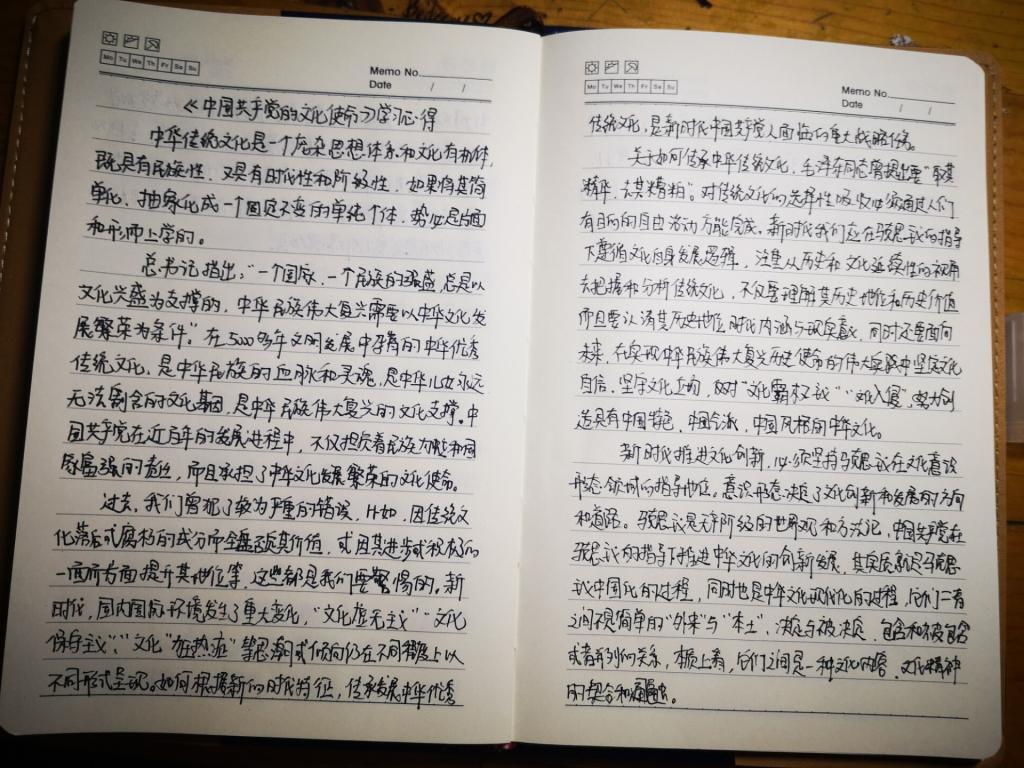 Mo Tu We Th Fr Sa Su
Memo No.
Date / /
《中国共产党的文化使命》学习心得
中华传统文化是一个庞杂思想体系和文化有机体,
既具有民族性,又具有时代性和阶级性,如果将其简
单化、抽象化成一个固定不变的单纯个体,势必是片面
和形而上学的。
总书记指出,“一个国家、一个民族的强盛,总是以
文化兴盛为支撑的,中华民族伟大复兴需要以中华文化发
展繁荣为条件”。在5000多年文明发展中孕育的中华优秀
传统文化,是中华民族的血脉和灵魂,是中华儿女永远
无法割舍的文化基因,是中华民族伟大复兴的文化支撑。中
国共产党在近百年的发展进程中,不仅担负着民族和国
家富强的责任,而且承担了中华文化发展繁荣的文化使命。
过去,我们曾犯了较为严重的错误,比如,因传统文
化落后或腐朽的成分而全盘否定其价值,或因其进步或积极的
一面而片面提升其地位等,这些都是我们要警惕的,新
时代,国内国际环境发生了重大变化,“文化虚无主义”“文化
保守主义”、“文化”等思潮或倾向仍在不同程度上以
不同形式呈现。如何根据新的时代特征,传承发展中华优秀
Mo Tu We Th Fr Sa Su
Memo No.
Date / /
传统文化,是新时代中国共产党人面临的重大战略任务。
关于如何传承中华传统文化,毛泽东同志曾提出要“取其
精华、去其糟粕”。对传统文化的选择性吸收必须通过人们
有目的的自由活动方能完成。新时代我们应在马克思主义的指导
下遵循文化自身发展逻辑,注重从历史和文化延续性的视角
去把握和分析传统文化,不仅要理解其历史地位和历史价值
而且要认清其历史地位、时代内涵与现实意义,同时还要面向
未来,在实现中华民族伟大复兴历史使命的伟大实践中坚定文化
自信,坚守文化立场,应对“文化霸权主义”“文化入侵”,努力创
造具有中国特色、中国气派、中国风格的中华文化。
新时代推进文化创新,必须坚持马克思主义在文化意识
形态领域的指导地位。意识形态决定了文化创新和发展的方向
和道路。马克思主义是无产阶级的世界观和方法论,中国共产党在
马克思主义的指导下推进中华文化的创新发展,其实质就是马克思
主义中国化的过程,同时也是中华文化现代化的过程,它们二者
之间不是简单的“外来”与“本土”、决定与被决定、包含和被包含
或者并列的关系,本质上看,它们之间是一种文化内容、文化精神
的契合和